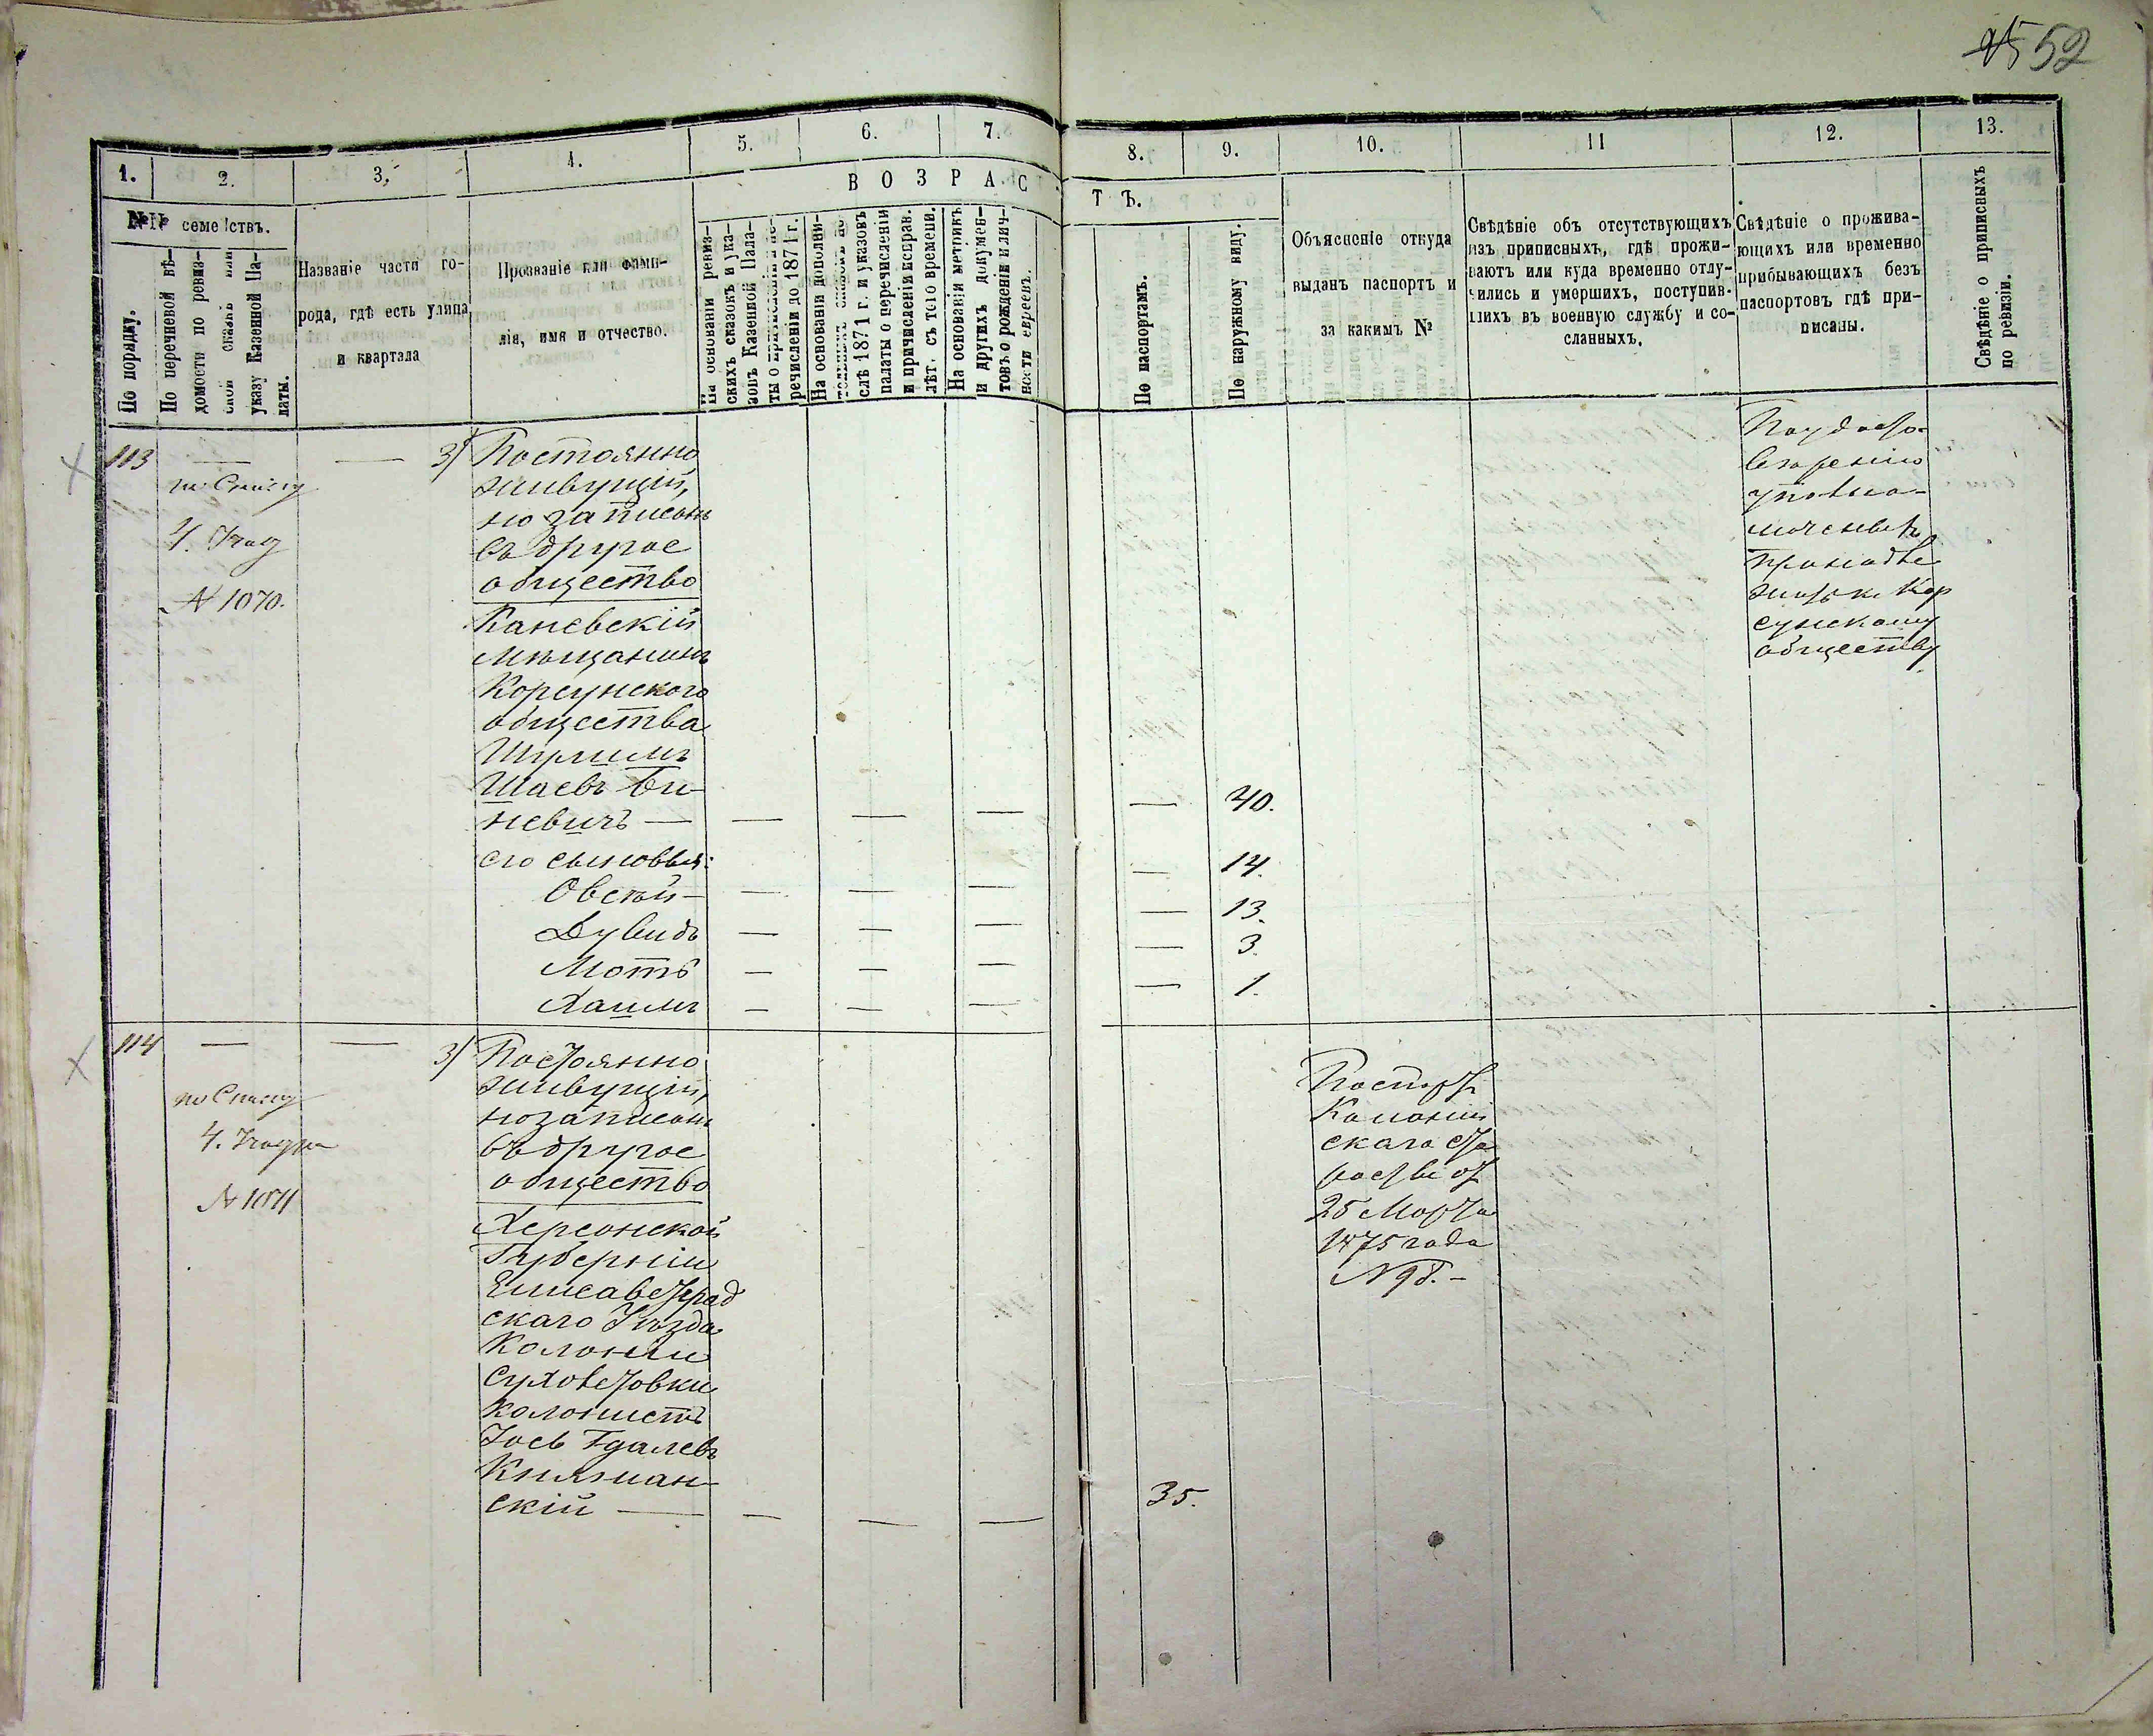 52
1. 2. 3. 4. 5. 6. 7. 8. 9. 10. 11 12. 13.
№№ семействъ.
По порядку.
По перечневой вѣ-
домости по ревиз-
ской сказкѣ или
указу Казенной Па-
латы.
Названіе части го-
рода, гдѣ есть улица
и квартала
Прозваніе или фами-
лія, имя и отчество.
ВОЗРАС
ТЪ.
На основаніи ревиз-
скихъ сказокъ и ука-
зовъ Казенной Пала-
ты о причисленіи и пе-
речисленіи до 1871 г.
На основаніи дополни-
слѣ 1871 г. и указовъ
палаты о перечисленіи
и причисленіи исправ.
лѣт. съ того времени.
На основаніи метрикъ
и другихъ докумен-
товъ о рожденіи и лич-
ности евреевъ.
По паспортамъ.
По наружному виду.
Объясненіе откуда
выданъ паспортъ и
за какимъ №
Свѣдѣніе объ отсутствующихъ
изъ приписныхъ, гдѣ прожи-
ваютъ или куда временно отлу-
чились и умершихъ, поступив-
шихъ въ военную службу и со-
сланныхъ.
Свѣдѣніе о прожива-
ющихъ или временно
прибывающихъ безъ
паспортовъ гдѣ при-
писаны.
Свѣдѣніе о приписныхъ
по ревизіи.
113
по Списку
4.
№ 1070.
3) Постоянно
живущій,
но записанъ
въ другое
общество
Каневскій
Мѣщанинъ
Корсунскаго
общества
Шулимъ
Шаевъ Би-
невичъ — 40.
его сыновья:
Овсѣй — 14.
Дувидъ 13.
Мотъ 3.
Хаимъ 1.
По удосто-
веренію
уполно-
моченныхъ
принадле
житъ къ Кор
сунскому
обществу
114
по Списку
4.
№ 1071
3) Постоянно
живущій,
но записанъ
въ другое
общество
Херсонской
Губерніи
Елисаветград
скаго Уѣзда
Колоніи
колонистъ
Іось Гдалевъ
Княжан-
скій — 35.
Паспортъ
скаго Ста
роства отъ
25 Марта
1875 года
№ 98. -